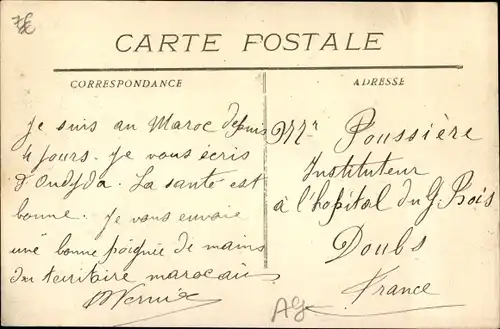 CARTE POSTALE
CORRESPONDANCE
ADRESSE
Je suis au Maroc depuis
4 jours. Je vous écris
d'Oudjda. La santé est
bonne. Je vous envoie
une bonne poignée de mains
du territoire marocain
Mr Poussière
Instituteur
à l'hopital du G. Bois
Doubs
France
AG